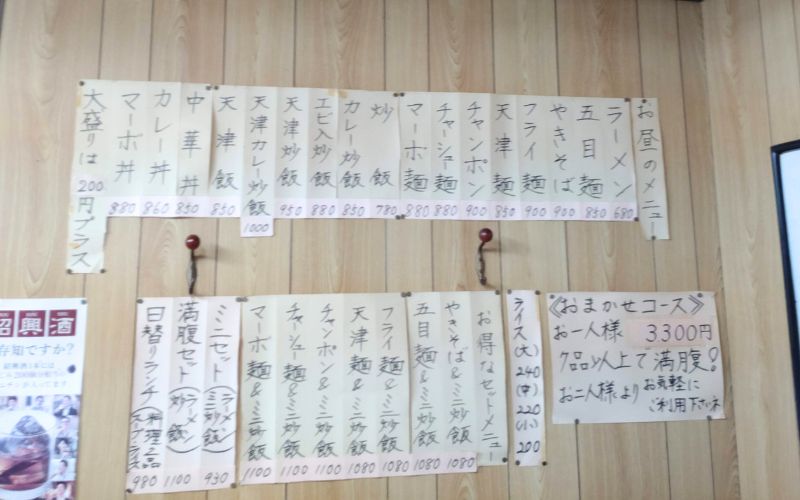 お昼のメニュー
ラーメン 680
五目麺 850
やきそば 900
フライ麺 900
天津麺 850
チャンポン 900
チャーシュー麺 880
マーボ麺 880
炒飯 780
カレー炒飯 850
エビ入炒飯 880
天津炒飯 950
天津カレー炒飯 1000
天津飯 850
中華丼 850
カレー丼 860
マーボ丼 880
大盛りは200円プラス
《おまかせコース》
お一人様 3300円
7品以上で満腹!
お二人様よりお気軽に
ご利用下さいネ
ライス(大)240
(中)220
(小)200
お得なセットメニュー
やきそば&ミニ炒飯 1080
五目麺&ミニ炒飯 1080
フライ麺&ミニ炒飯 1080
天津麺&ミニ炒飯 1080
チャンポン&ミニ炒飯 1100
チャーシュー麺&ミニ炒飯 1100
マーボ麺&ミニ炒飯 1100
ミニセット(ラーメン ミニ炒飯) 930
満腹セット(ラーメン 炒飯) 1100
日替りランチ(料理2品 スープライス) 980
紹興酒
存知ですか?